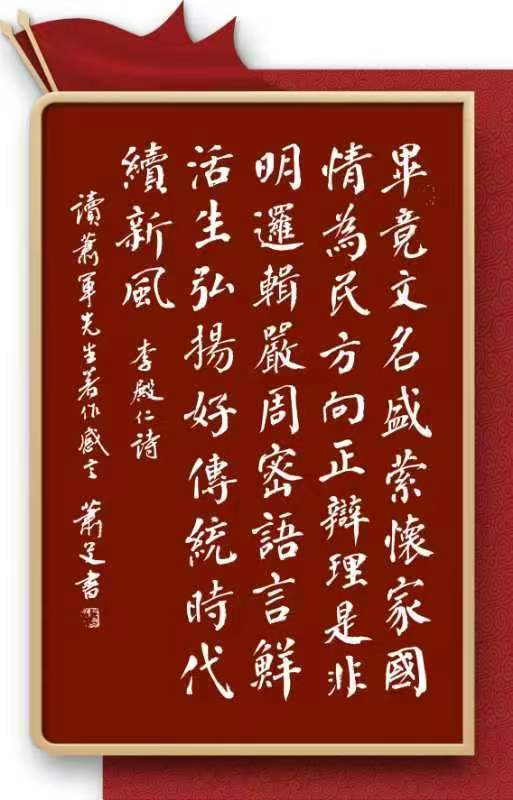 畢竟文名盛縈懷家國
情為民方向正辯理是非
明邏輯嚴周密語言鮮
活生弘揚好傳統時代
續新風
李殿仁詩
讀蕭軍先生著作感言